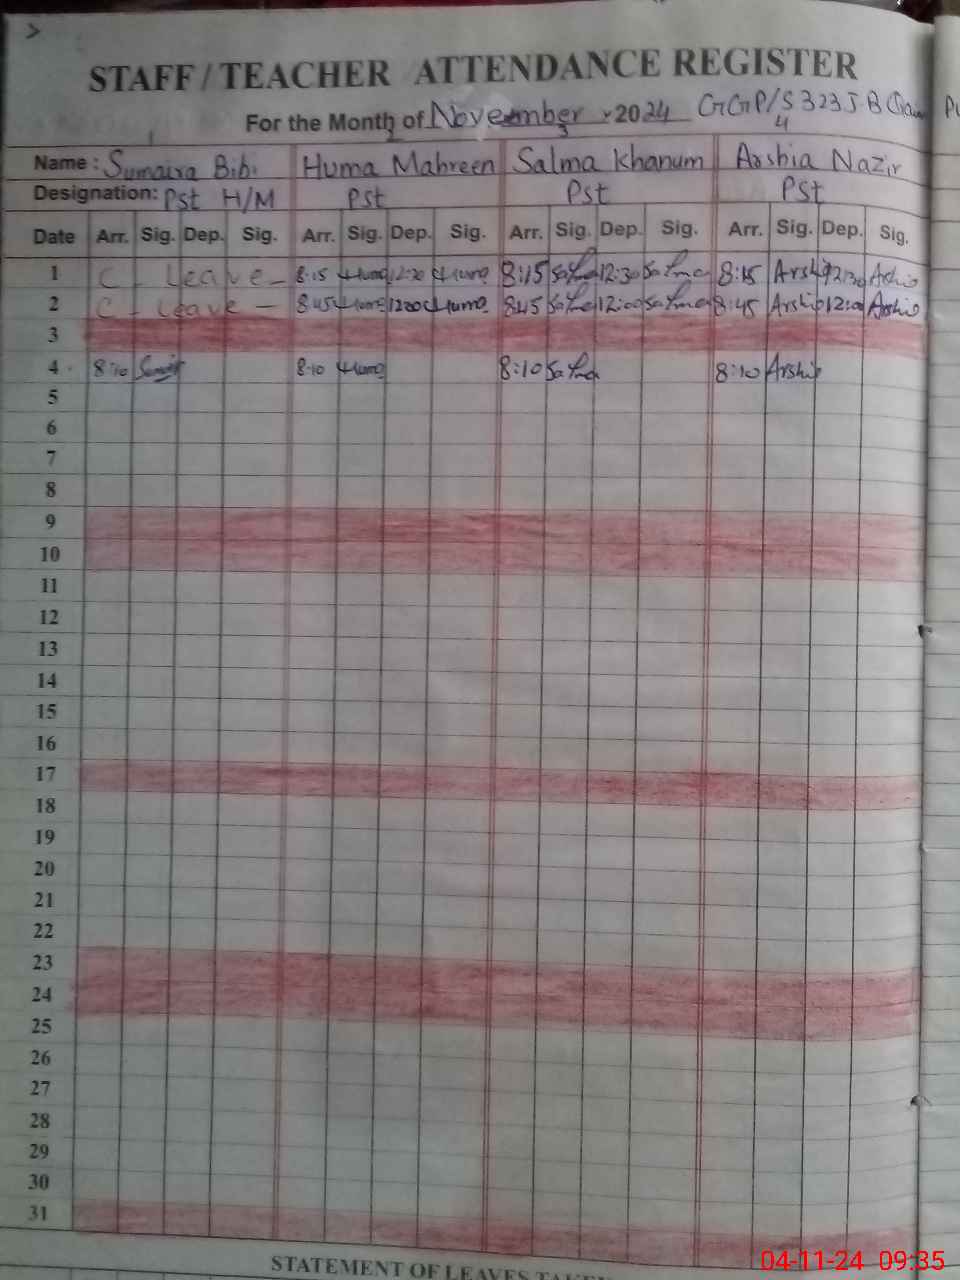 STAFF / TEACHER ATTENDANCE REGISTER
For the Month of November 2024 GGP/S 323 J.B
Name : Sumaira Bibi Huma Mahreen Salma Khanum Arshia Nazir
Designation: Pst H/M Pst Pst Pst
Date Arr. Sig. Dep. Sig. Arr. Sig. Dep. Sig. Arr. Sig. Dep. Sig. Arr. Sig. Dep. Sig.
1 C Leave - 8:15 Huma 12:30 Huma 8:15 Salma 12:30 Salma 8:15 Arshia 12:30 Arshia
2 C - Leave - 8:45 Huma 12:00 Huma 8:45 Salma 12:00 Salma 8:45 Arshia 12:00 Arshia
3
4 8:10 8:10 Huma 8:10 Salma 8:10 Arshia
5
6
7
8
9
10
11
12
13
14
15
16
17
18
19
20
21
22
23
24
25
26
27
28
29
30
31
STATEMENT OF LEAVES TAKEN
04-11-24 09:35